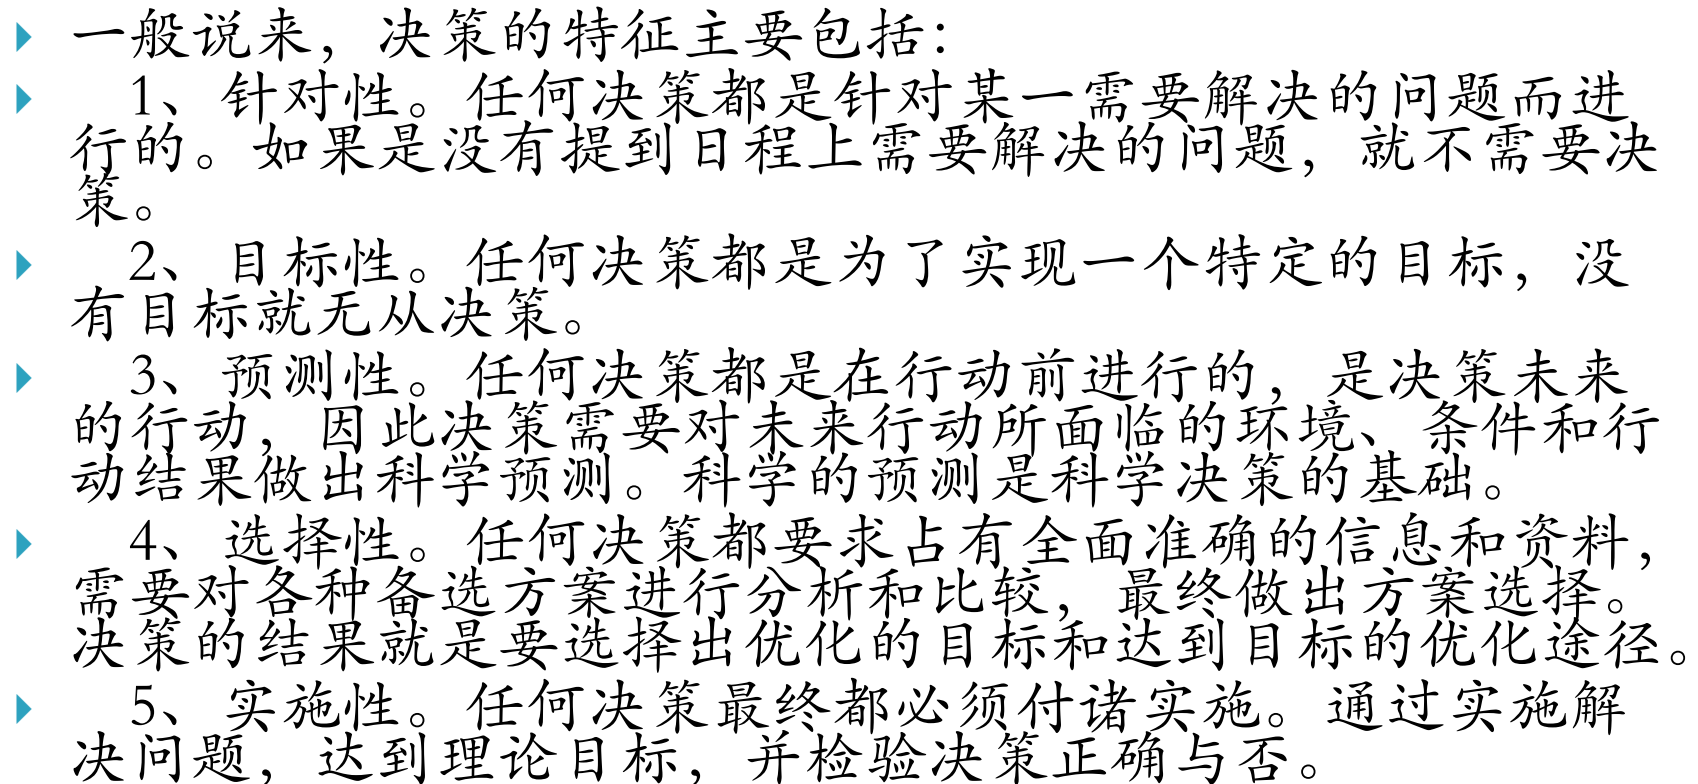 一般说来，决策的特征主要包括：
1、针对性。任何决策都是针对某一需要解决的问题而进
行的。如果是没有提到日程上需要解决的问题，就不需要决
策。
2、目标性。任何决策都是为了实现一个特定的目标，没
有目标就无从决策。
3、预测性。任何决策都是在行动前进行的，是决策未来
的行动，因此决策需要对未来行动所面临的环境、条件和行
动结果做出科学预测。科学的预测是科学决策的基础。
4、选择性。任何决策都要求占有全面准确的信息和资料，
需要对各种备选方案进行分析和比较，最终做出方案选择。
决策的结果就是要选择出优化的目标和达到目标的优化途径。
5、实施性。任何决策最终都必须付诸实施。通过实施解
决问题，达到理论目标，并检验决策正确与否。